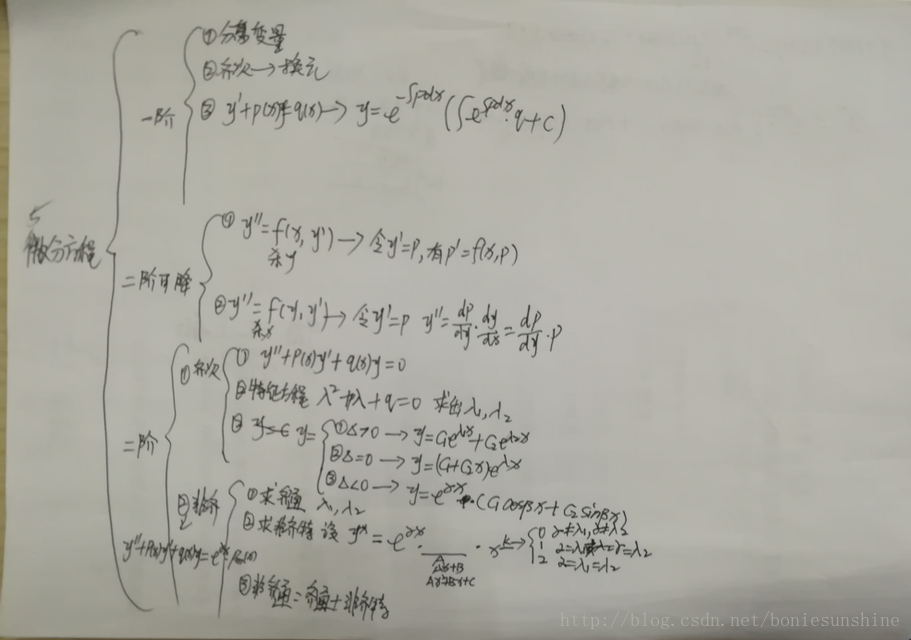 5
微分方程
一阶
① 分离变量
② 齐次 → 换元
③ y'+p(x)y=q(x) → y=e^{-∫pdx}(∫e^{∫pdx}·q+C)
二阶可降
① y''=f(x,y') → 令y'=p,有p'=f(x,p)
杀y
② y''=f(y,y') → 令y'=p y''=dp/dy·dy/dx=dp/dy·p
杀x
二阶
① 齐次
① y''+p(x)y'+q(x)y=0
② 特征方程 λ²+pλ+q=0 求出λ₁,λ₂
③ y=
① Δ>0 → y=C₁e^{λ₁x}+C₂e^{λ₂x}
② Δ=0 → y=(C₁+C₂x)e^{λx}
③ Δ<0 → y=e^{αx}·(C₁cosβx+C₂sinβx)
② 非齐
① 求齐通 λ₁,λ₂
② 求非齐特 设 y*=e^{αx}·___·x^k →
0 α≠λ₁,α≠λ₂
1
2 α=λ₁=λ₂
Ax+B
Ax²+Bx+C
③ 非齐通=齐通+非齐特
http://blog.csdn.net/boniesunshine